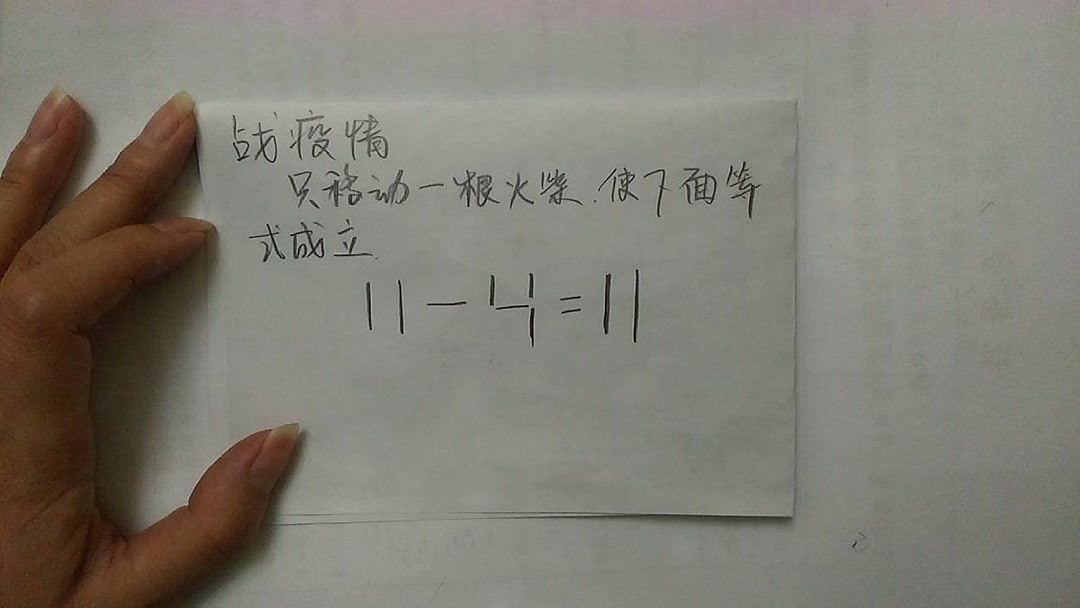 战疫情
只移动一根火柴.使下面等
式成立.
11-4=11